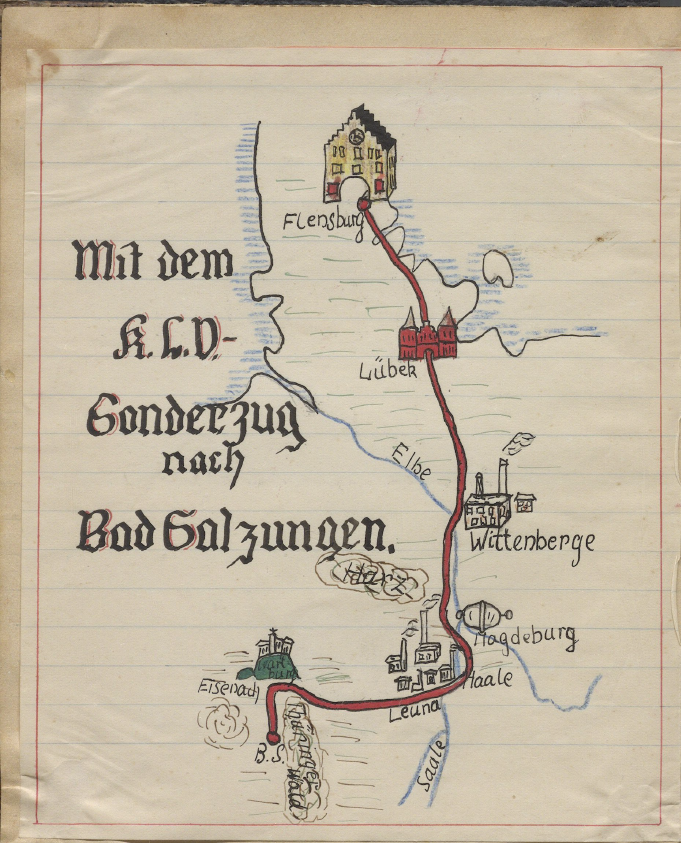 Flensburg
Mit dem
K. L. V.-
Sonderzug
nach
Bad Salzungen.
Lübek
Elbe
Wittenberge
Harz
Magdeburg
Haale
Leuna
Saale
Wart
burg
Eisenach
B.S.
Thüringer
Wald